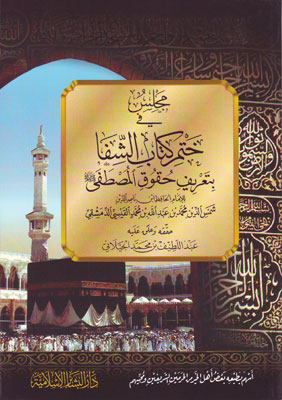 مجلس
في
ختم كتاب الشفا
بتعريف حقوق المصطفى ﷺ
للإمام الحافظ ابن ناصر الدين
شمس الدين محمد بن عبد الله بن محمد القيسي الدمشقي
حققه وعلق عليه
عبد اللطيف بن محمد الجيلاني
أسهم بطبعه بعض أهل الخير من الحرمين الشريفين ومحبيهم
دار البشائر الإسلامية